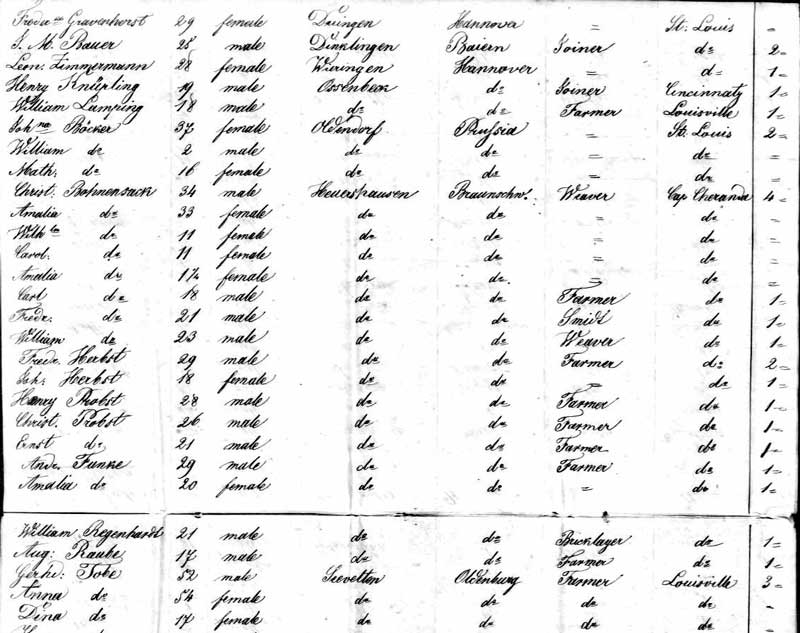 Fredr ke Gravenhorst 29 female Duingen Hannover = St. Louis =
J. M. Bauer 25 male Dinklingen Baiern Joiner do 2=
Leon: Zimmermann 28 female Wieringen Hannover = do 1=
Henry Knüpling 19 male Ossenbeck do Joiner Cincinnaty 1=
William Lamping 18 male do do Farmer Louisville 1=
Joh na Böcker 37 female Oldendorf Prussia = St. Louis 2=
William do 2 male do do = do =
Math: do 16 female do do = do =
Christ: Bohnensack 34 male Heuershausen Braunschw. Weaver Cap Cheranda 4=
Amalia do 33 female do do = do =
Wilh do 11 female do do = do =
Carol. do 11 female do do = do =
Amalia do female do do = do =
Carl do 18 male do do Farmer do 1=
Fredr: do 21 male do do Smidt do 1=
William do 23 male do do Weaver do 1=
Fredr. Herbst 29 male do do Farmer do 2=
Joh: Herbst 18 female do do = do 1=
Henry Probst 28 male do do Farmer do 1=
Christ. Probst 26 male do do Farmer do 1=
Ernst do 21 male do do Farmer do 1=
Andr. Funke 29 male do do Farmer do 1=
Amalia do 20 female do do = do 1=
William Regenhardt 21 male do do Bricklayer do 1=
Aug: Raube 17 male do do Farmer do 1=
Gerhd: Tobe 52 male Seevelten Oldenburg Farmer Louisville 3=
Anna do 54 female do do do do -
Dina do 17 female do do do do =